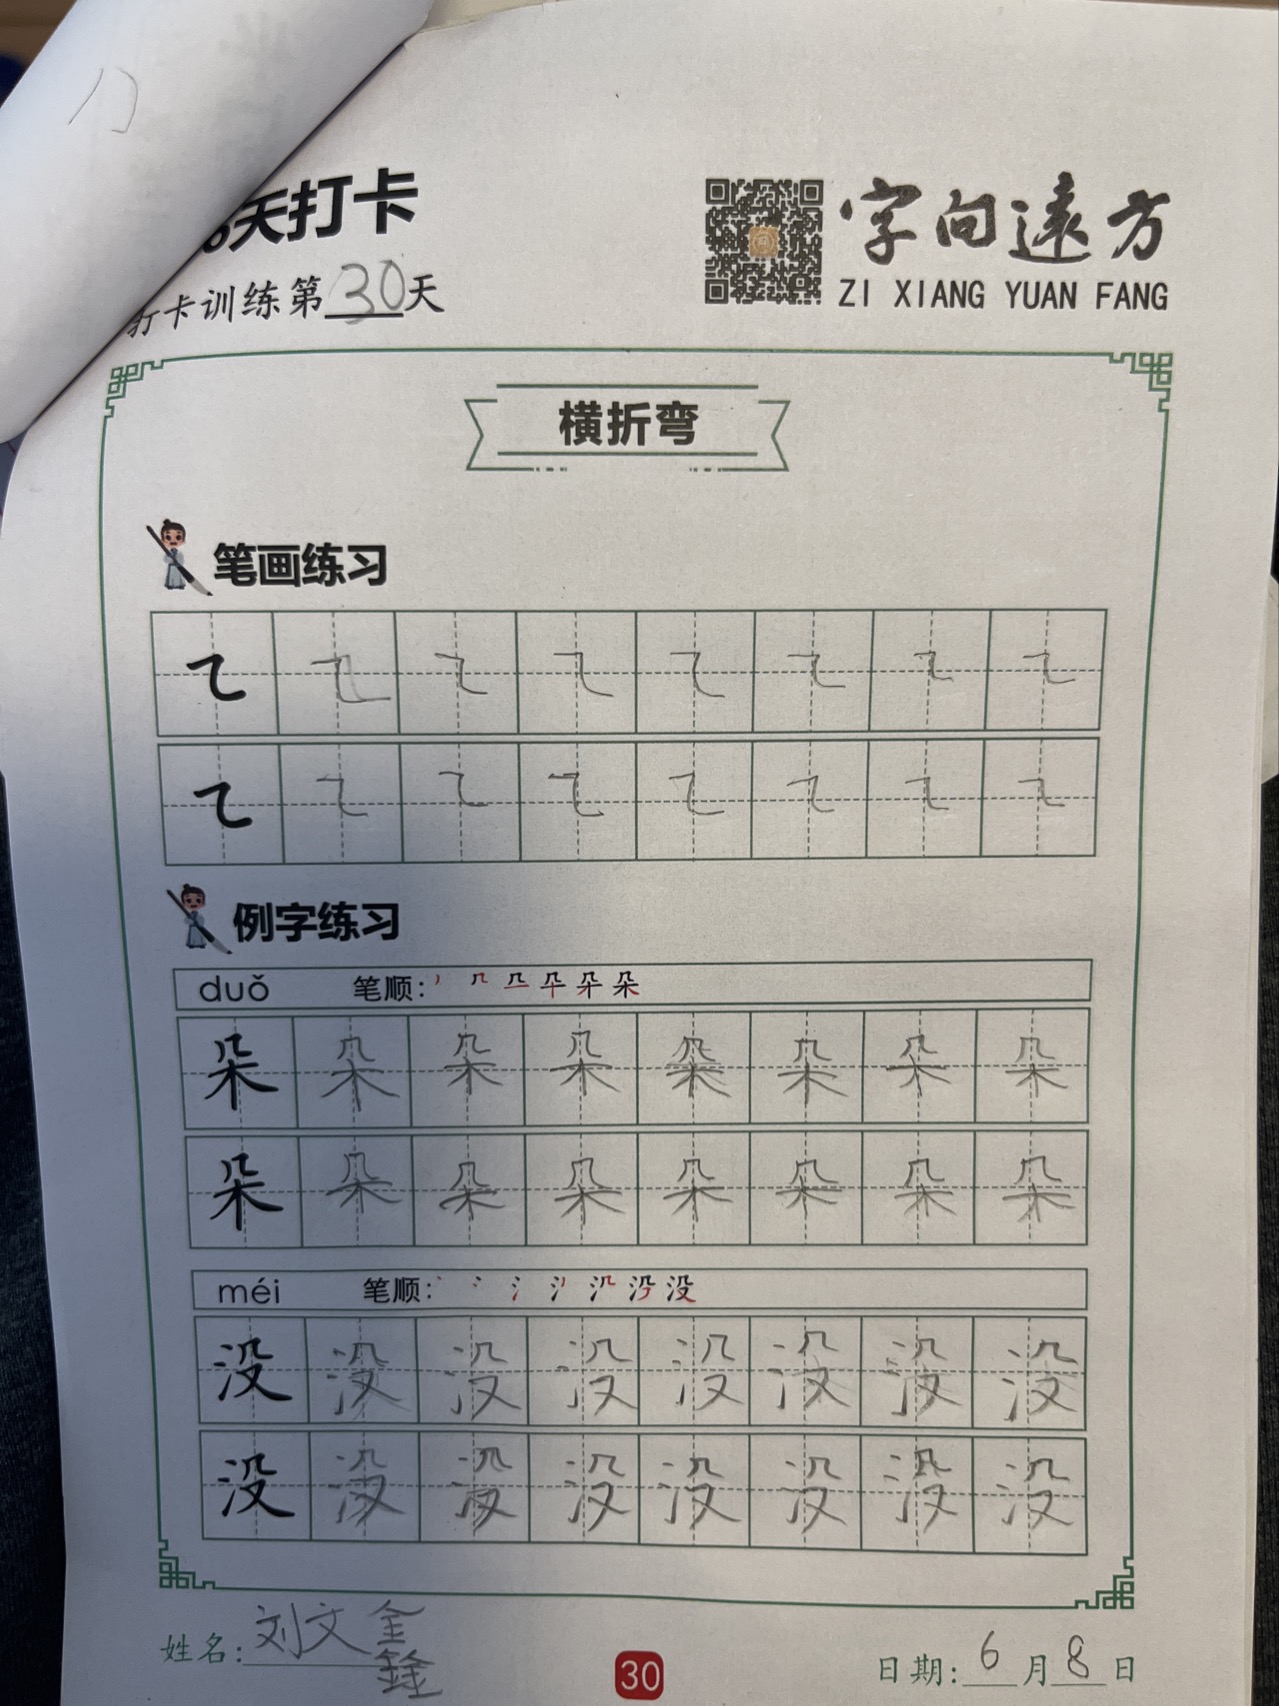 天打卡
打卡训练第30天
字向遠方
ZI XIANG YUAN FANG
横折弯
笔画练习
例字练习
duǒ 笔顺:
朵 朵 朵 朵 朵 朵 朵 朵
朵 朵 朵 朵 朵 朵 朵 朵
méi 笔顺: 没
没 没 没 没 没 没 没 没
没 没 没 没 没 没 没 没
姓名: 刘文
30
日期: 6月8日